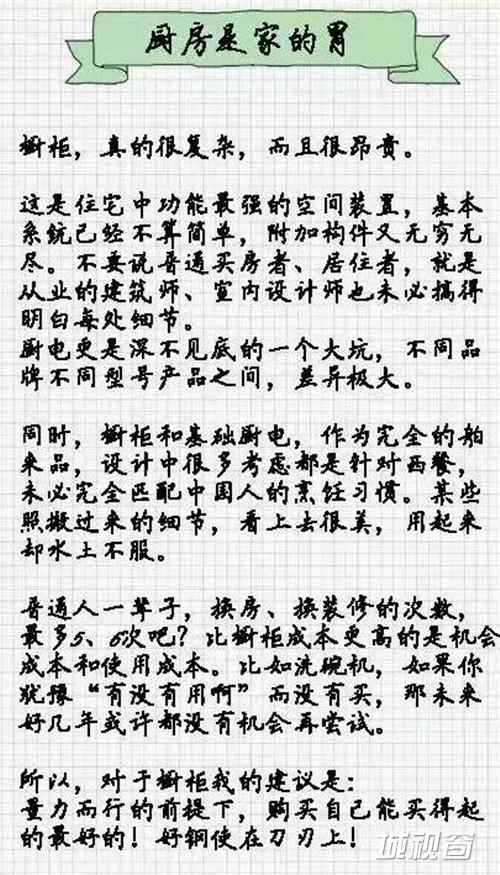 厨房是家的胃
橱柜，真的很复杂，而且很昂贵。
这是住宅中功能最强的空间装置，基本
系统已经不算简单，附加构件又无穷无
尽。不要说普通买房者、居住者，就是
从业的建筑师、室内设计师也未必搞得
明白每处细节。
厨电更是深不见底的一个大坑，不同品
牌不同型号产品之间，差异极大。
同时，橱柜和基础厨电，作为完全的舶
来品，设计中很多考虑都是针对西餐，
未必完全匹配中国人的烹饪习惯。某些
照搬过来的细节，看上去很美，用起来
却水土不服。
普通人一辈子，换房、换装修的次数，
最多5、6次吧？比橱柜成本更高的是机会
成本和使用成本。比如洗碗机，如果你
犹豫“有没有用啊”而没有买，那未来
好几年或许都没有机会再尝试。
所以，对于橱柜我的建议是：
量力而行的前提下，购买自己能买得起
的最好的！好钢使在刀刃上！
城视窗